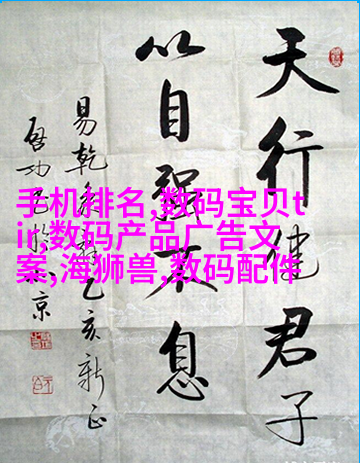 手机排名,数码宝贝t
ir,数码产品广告文
案,海狮兽,数码配件
天行健君子
以自强不息
易乾乙亥新正
啓功京